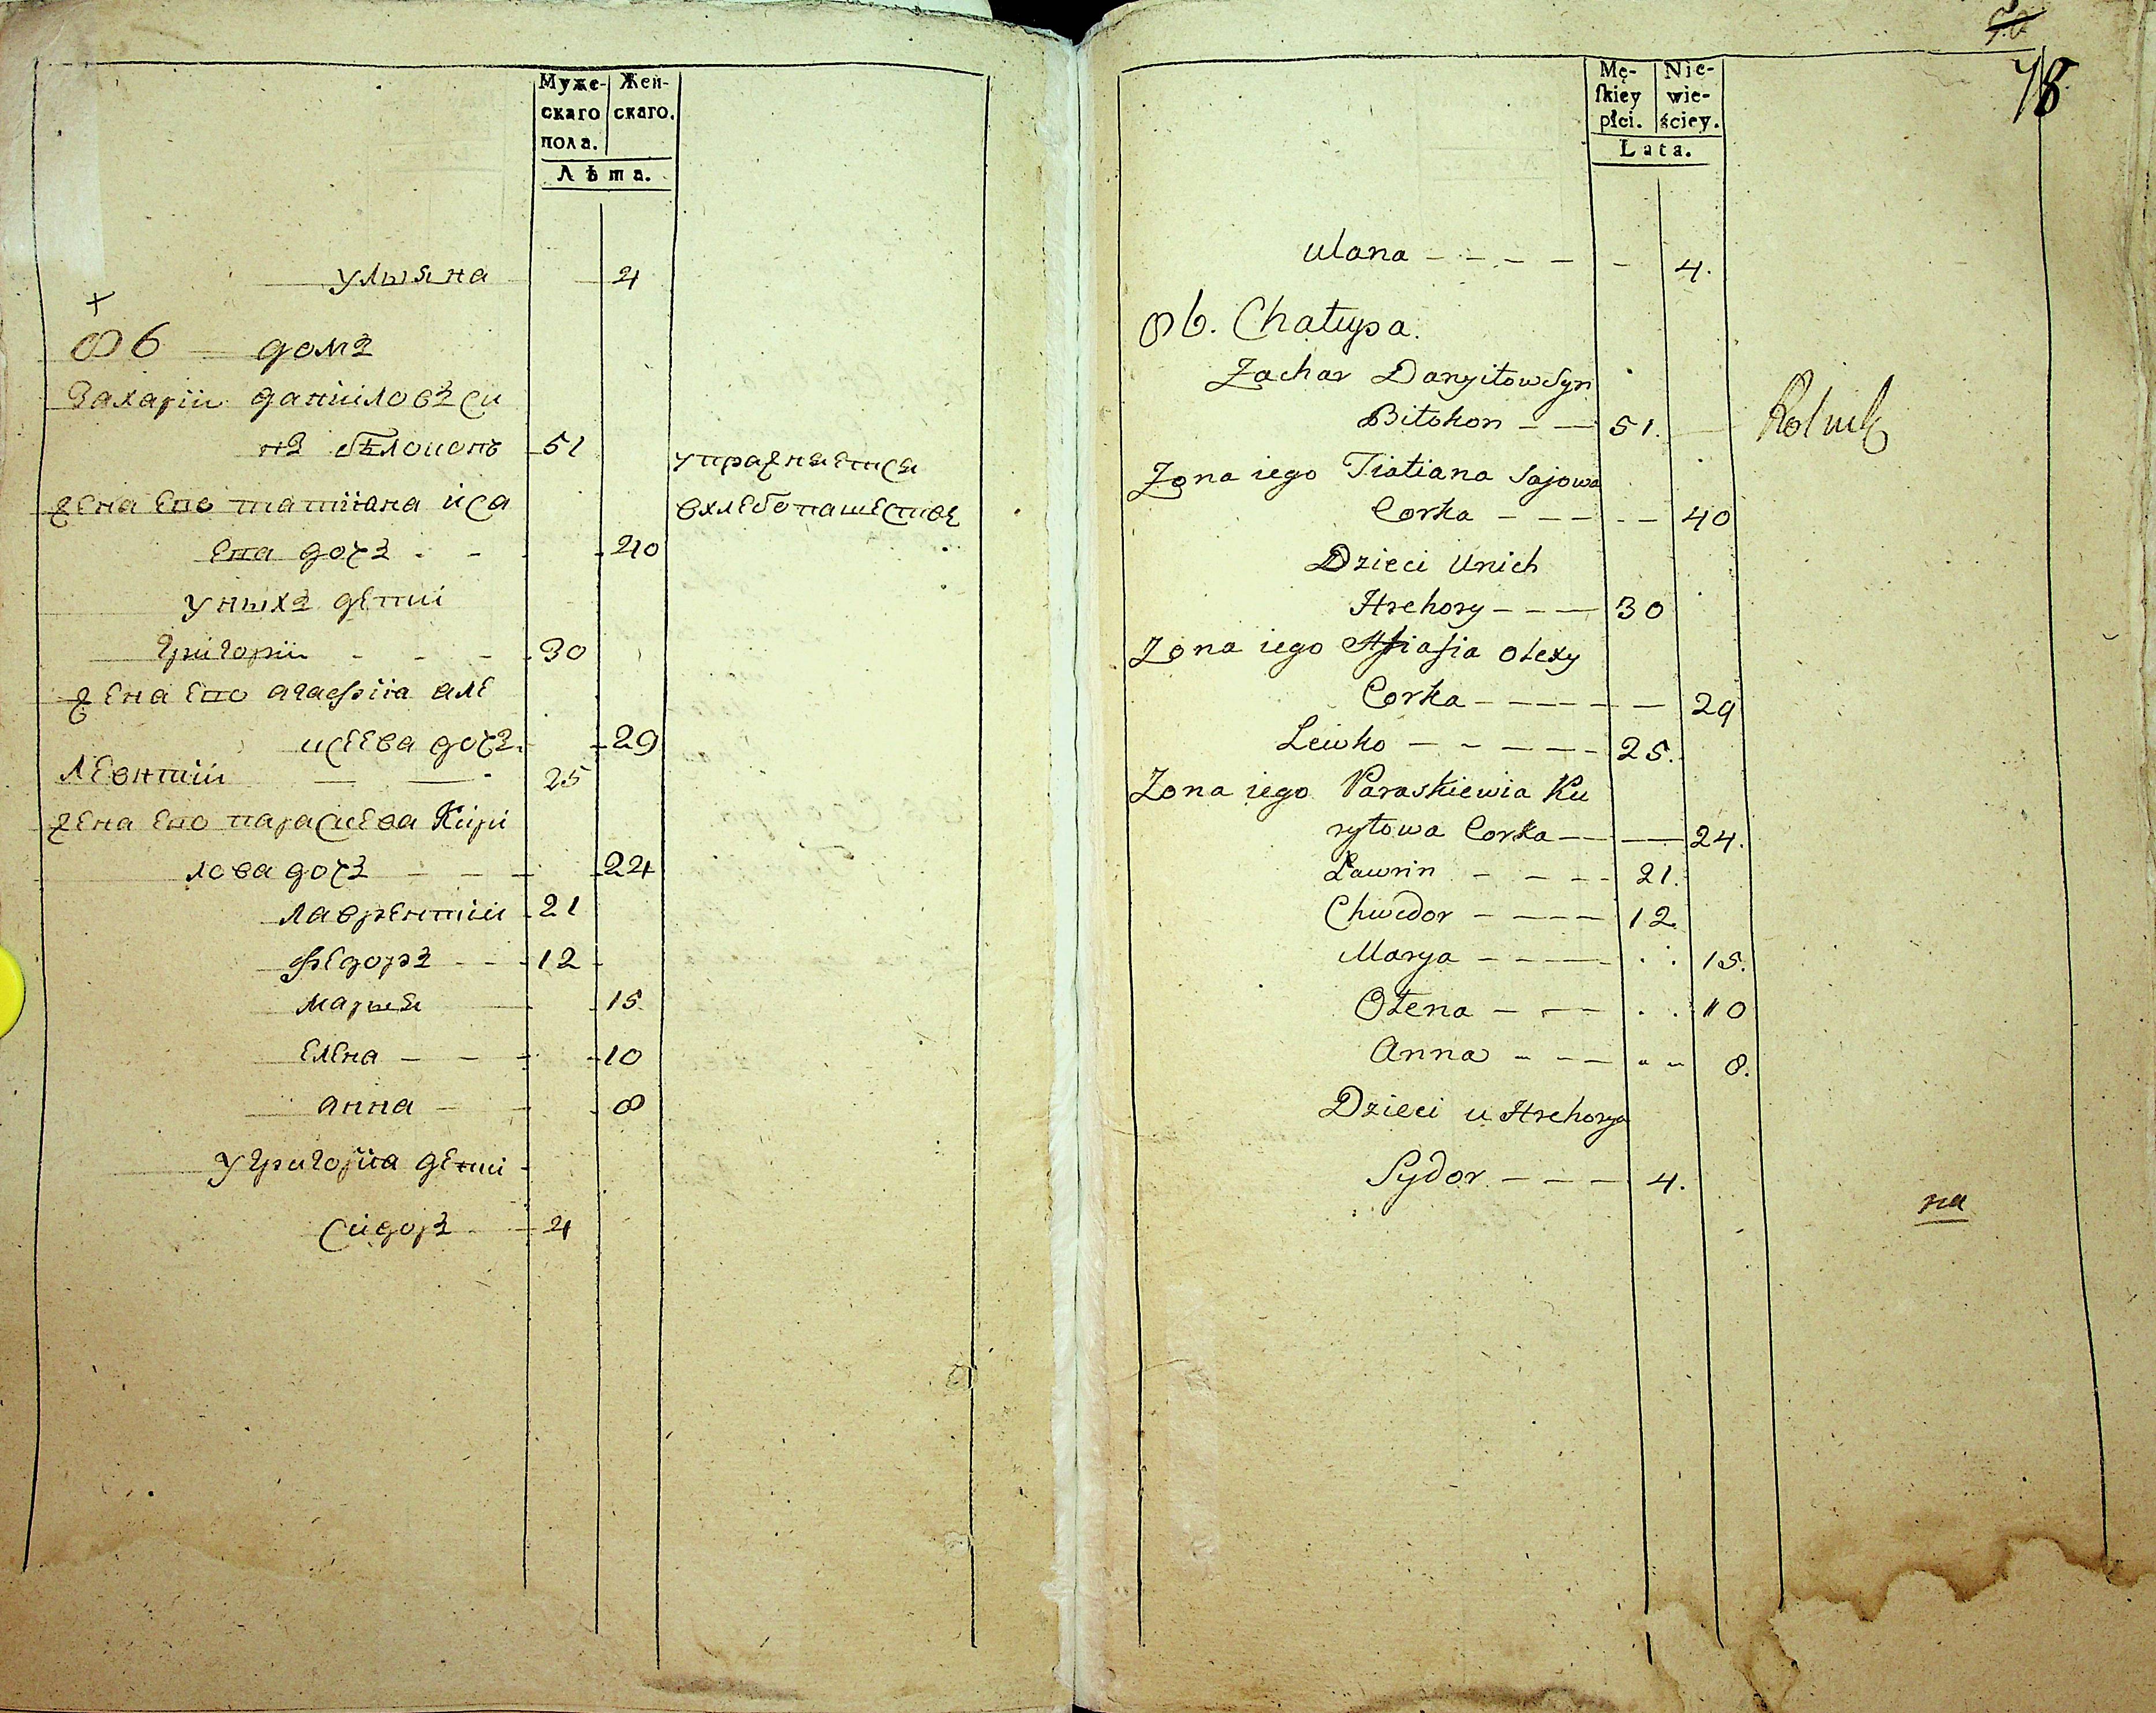 Муже- Жен-
скаго скаго.
пола.
Лѣта.
улыяна 4
+
86 домъ
Захарiи данiиловъ сы
нъ бѣлоконь 51
упражняется
жена его татiяна иса
вхлебопашестве
ева дочъ - - 40
уныхъ дети
григорiи - - - 30
жена его агафiia але
ксеева дочъ. 29
Левнтiи — — 25
жена его параскева Кири
лова дочъ - - - 24
лаврентiи 21
федоръ - - - 12
марья 15
елена - - - 10
анна - - 8
у григорiя дети
сидоръ 4
78
Mę- Nie-
ſkiey wie-
płci. ściey.
Lata.
Ulana - - - - - 4.
86. Chałupa.
Zachar Danyiłow Syn
Biłokon - - 51. Rolnik
Zona iego Tiatiana Sajowa
Corka - - - - - 40
Dzieci Unich
Hrehory - - - 30
Zona iego Ahafia Olexy
Corka - - - - - - 29
Lewko - - - - - 25.
Zona iego Paraskiewia Ku
ryłowa Corka - - 24.
Ławrin - - - - 21.
Chwedor - - - - 12.
Marya - - - - . . 15.
Ołena - - - . . 10
Anna - - - - - 8.
Dzieci u Hrehorya
Sydor - - - 4.
na